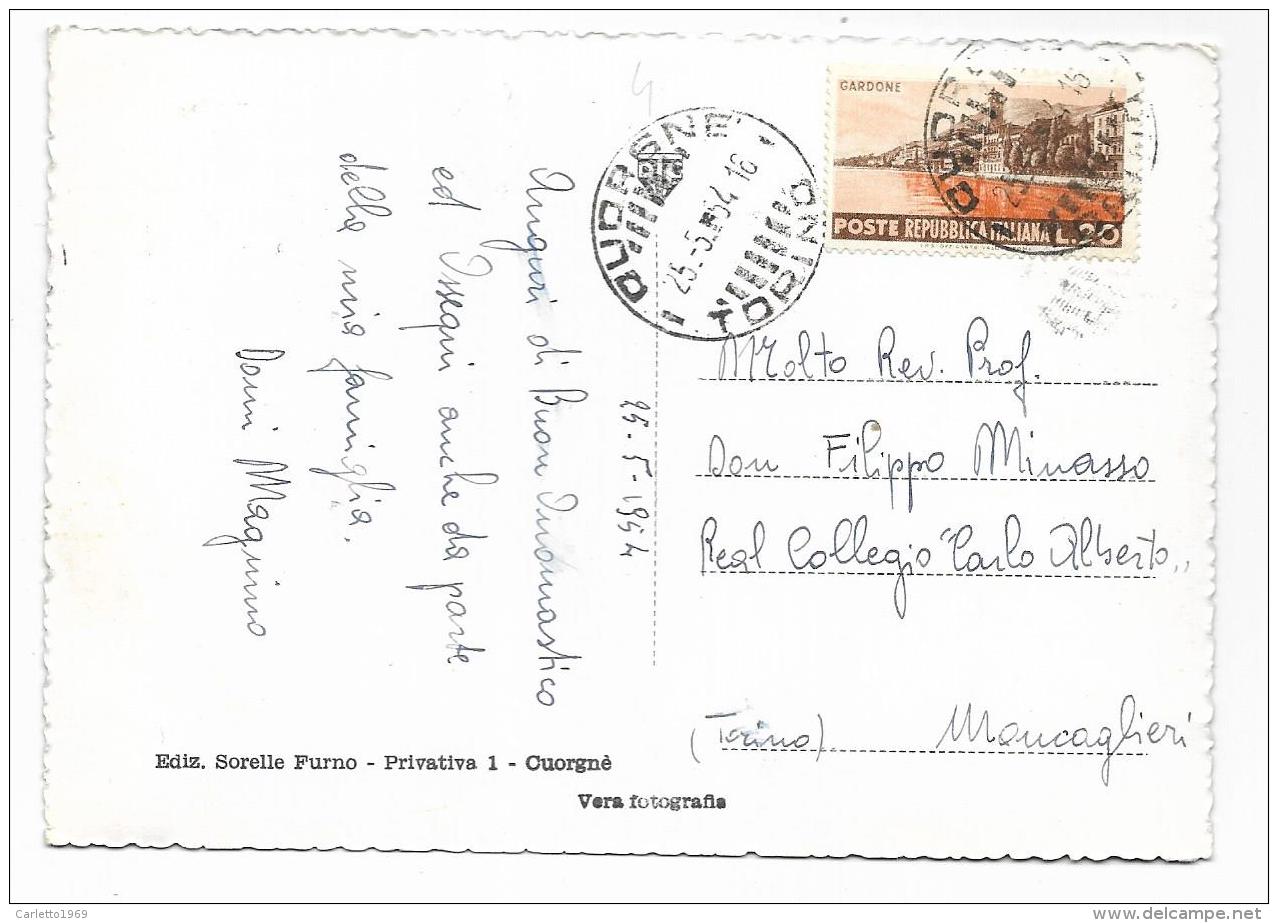 4
GARDONE
POSTE REPUBBLICA ITALIANA L.20
CUORGNE'
25.-5.54 16
TORINO
25-5-1954
Auguri di Buon Onomastico
ed Ossequi anche da parte
della mia famiglia.
Domi Maquino
Molto Rev. Prof.
Don Filippo Minasso
Real Collegio "Carlo Alberto„
(Torino) Moncaglieri
Ediz. Sorelle Furno - Privativa 1 - Cuorgnè
Vera fotografia
Carletto1969
delcampe.net